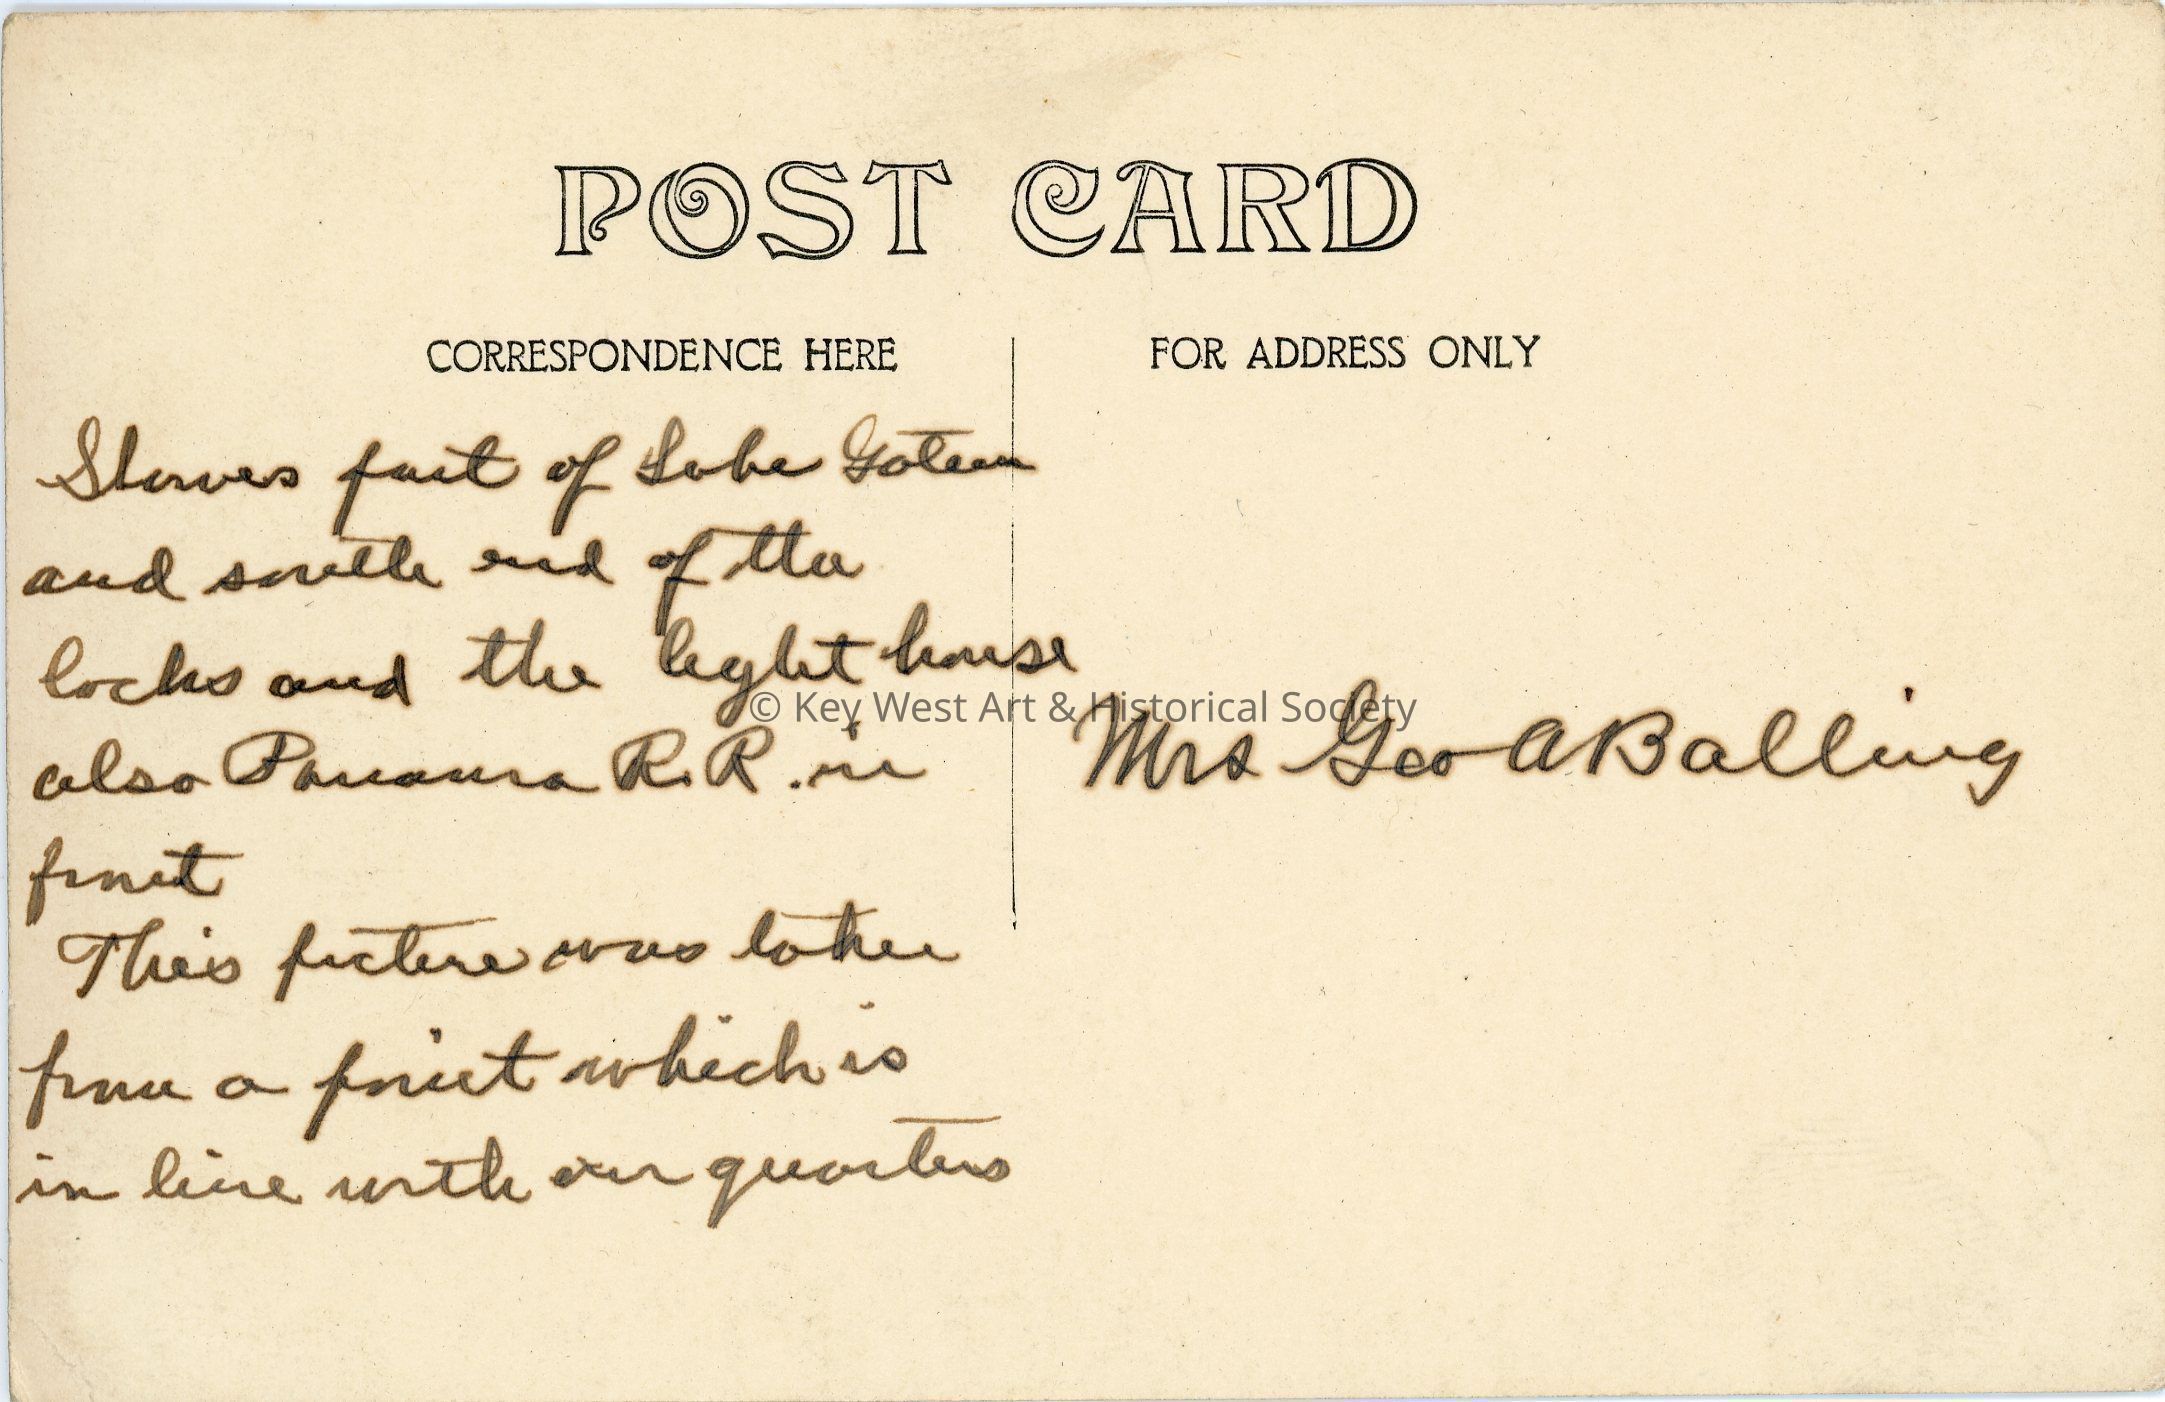 POST CARD
CORRESPONDENCE HERE
FOR ADDRESS ONLY
Shows part of Lake Gatun
and south end of the
locks and the light house
also Panama R.R. in
front
This picture was taken
from a point which is
in line with our quarters
Mrs Geo A Balling
© Key West Art & Historical Society